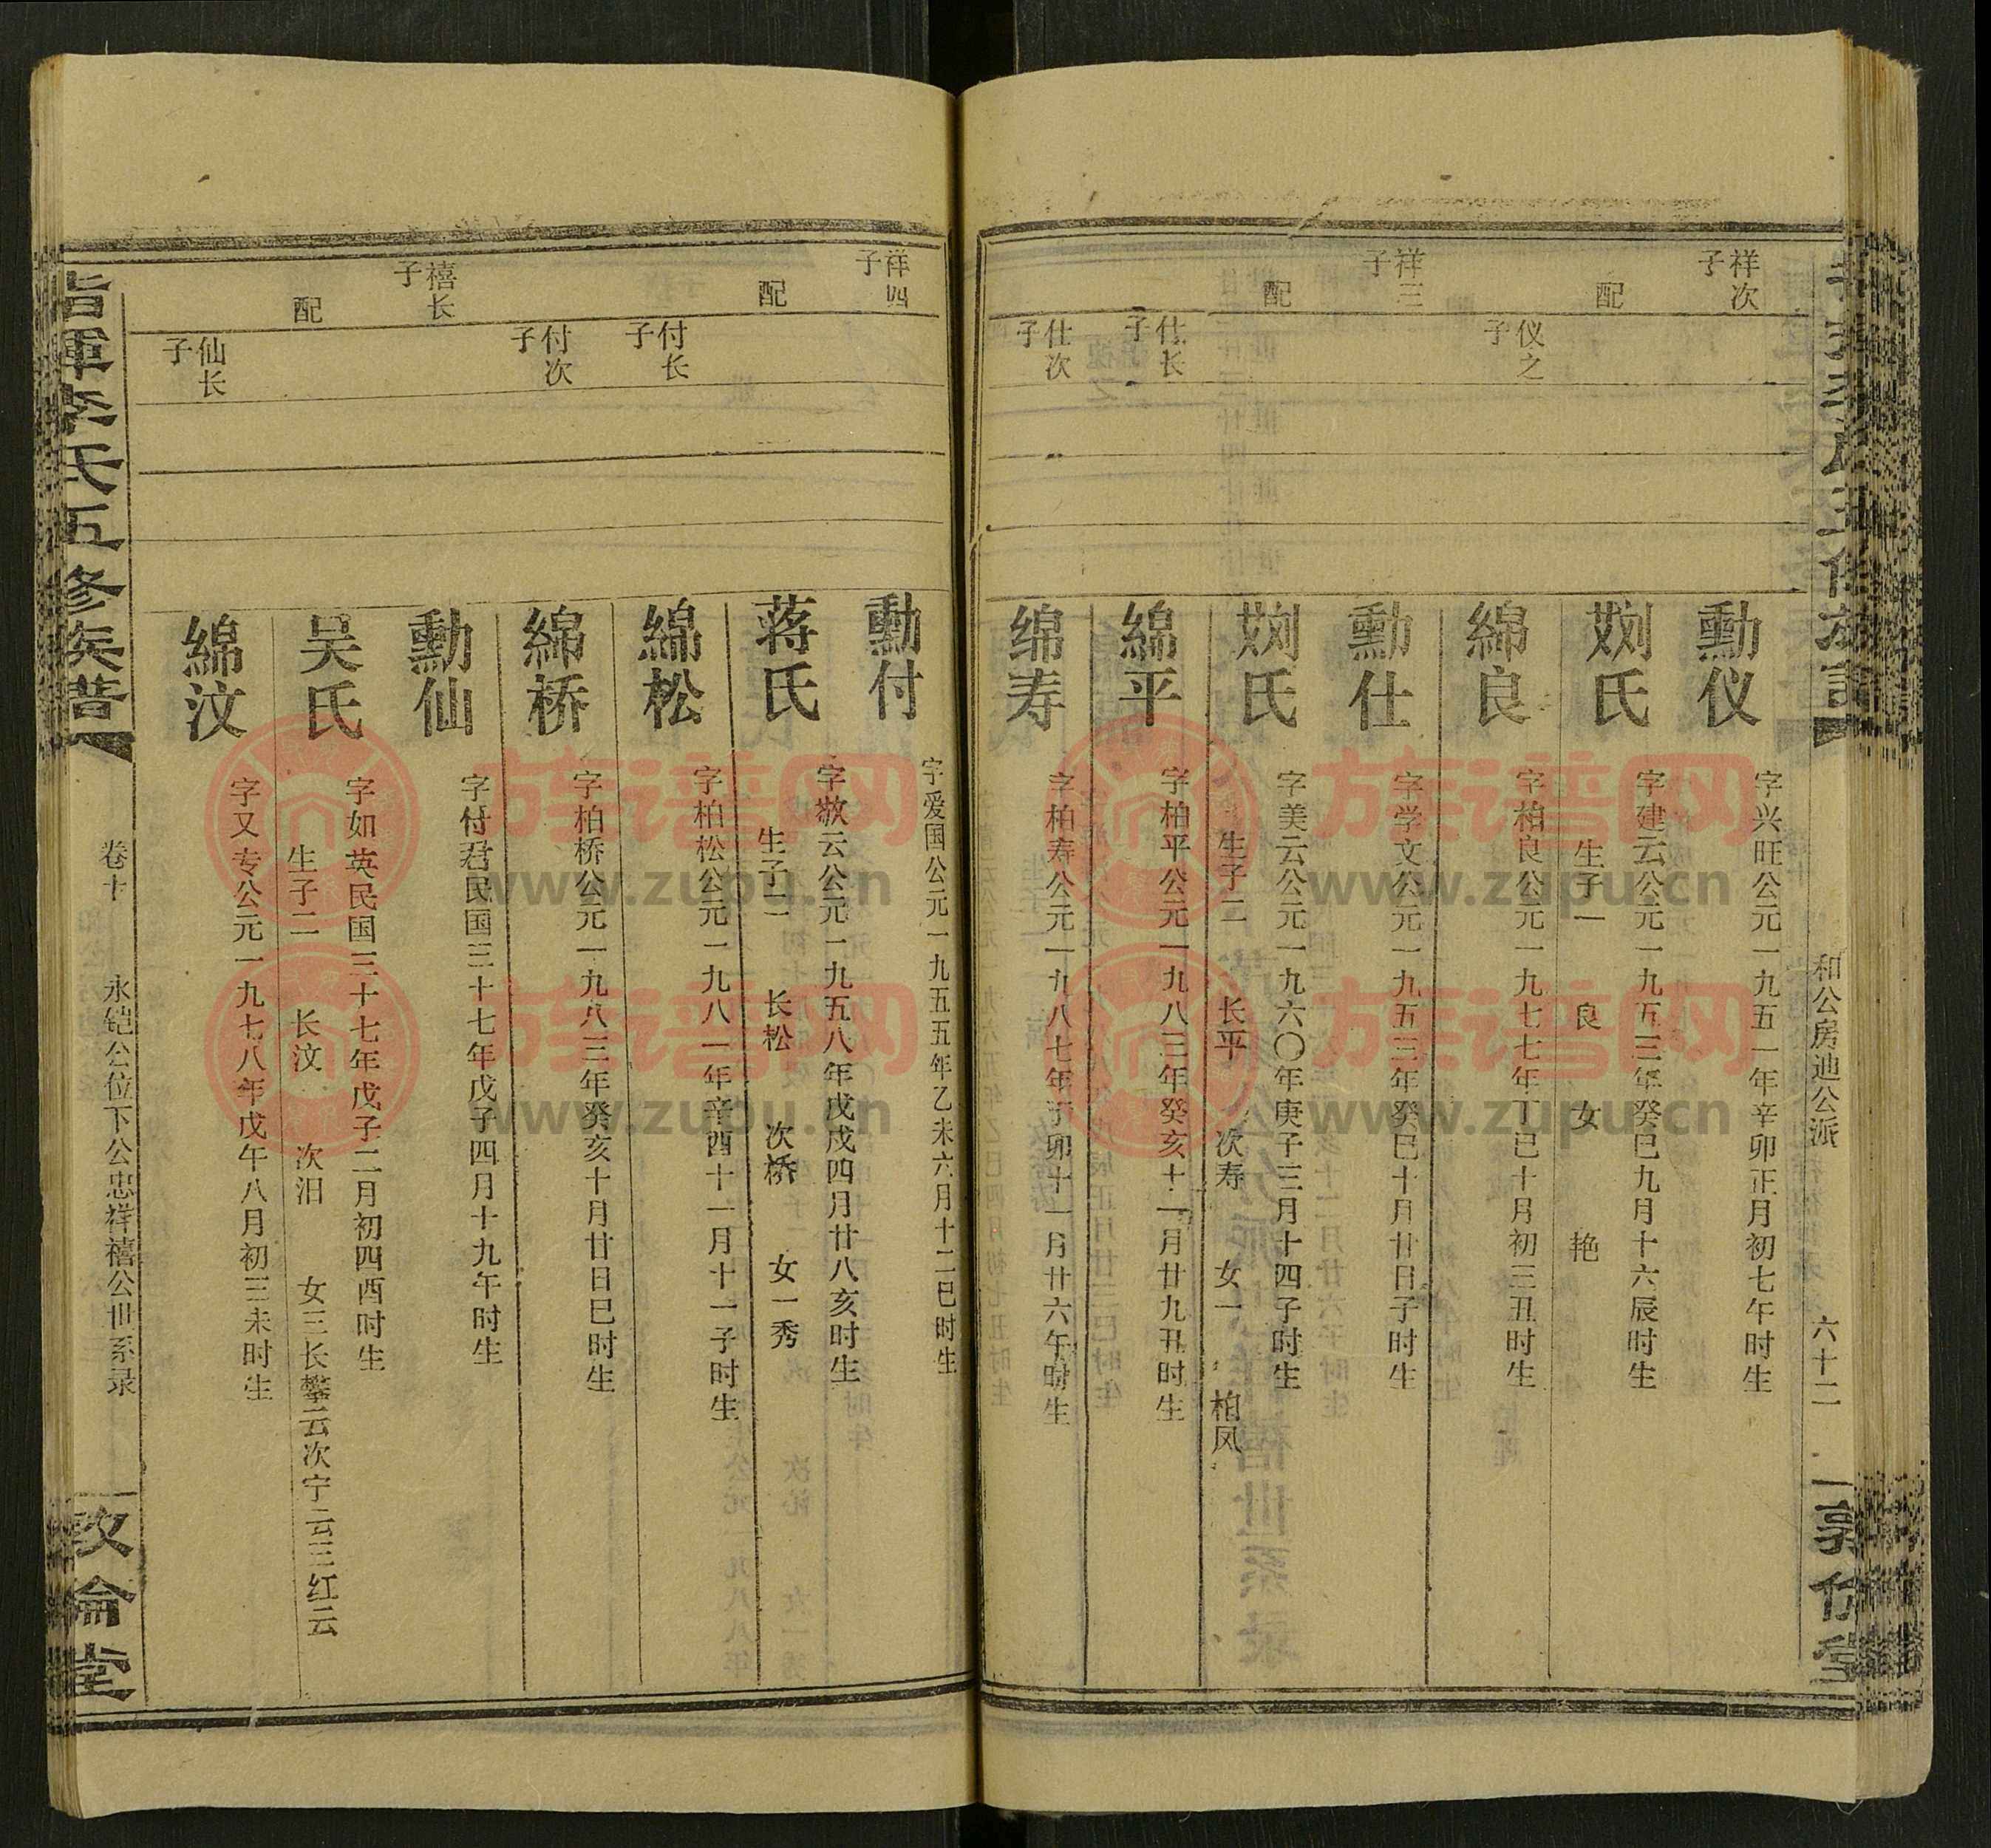 和公房迪公派
六十二
祥次子
勳仪
字兴旺公元一九五一年辛卯正月初七午时生
配
刘氏
字建云公元一九五三年癸巳九月十六辰时生
生子一 良 女 艳
仪之子
綿良
字柏良公元一九七七年丁巳十月初三丑时生
祥三子
勳仕
字学文公元一九五三年癸巳十月廿日子时生
配
刘氏
字美云公元一九六〇年庚子三月十四子时生
生子二 长平 次寿 女一 柏凤
仕长子
綿平
字柏平公元一九八三年癸亥十一月廿九丑时生
仕次子
绵寿
字柏寿公元一九八七年丁卯十一月廿六午时生
祥四子
勳付
字爱国公元一九五五年乙未六月十二巳时生
配
蒋氏
字敬云公元一九五八年戊戌四月廿八亥时生
生子二 长松 次桥 女一秀
付长子
綿松
字柏松公元一九八一年辛酉十一月十一子时生
付次子
綿桥
字柏桥公元一九八三年癸亥十月廿日巳时生
禧长子
勳仙
字付君民国三十七年戊子四月十九午时生
配
吴氏
字如英民国三十七年戊子二月初四酉时生
生子二 长汶 次汨 女三长攀云次宁云三红云
仙长子
綿汶
字又专公元一九七八年戊午八月初三未时生
李氏五修族谱
卷十
永铠公位下公忠祥禧公世系录
敦倫堂
族谱网
www.zupu.cn
族谱网
www.zupu.cn
族谱网
www.zupu.cn
族谱网
www.zupu.cn